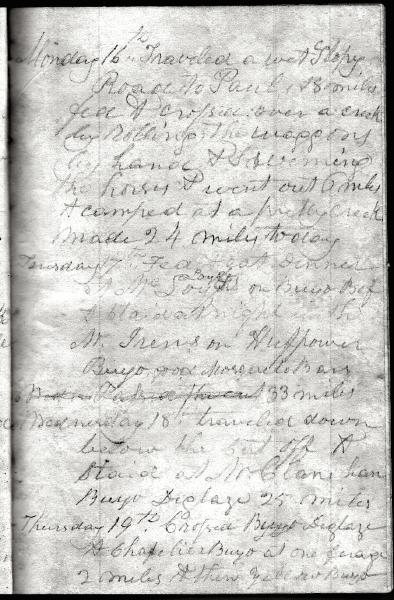 Monday 16th Traveled a wet Slopy
Road to Pauls 18 miles
fed & crossed over a creek
by Rolling the waggons
by hand & Swiming
the horses & went out 6 miles
& camped at a pretty creek
made 24 miles to day
7th Fed & got Dinner
at Mr on Buyo Bef
& staid at night with
Mr on Huffpower
Buyo good Mosquito Bars
33 miles
Wednesday 18th traveled down
below the Cut off &
Staid at Mr han
Buyo Deglaze 25 miles
Thursday 19th Crossed Buyo Deglaze
& Chafelier Buyo at one
2 miles & then Yellow Buyo